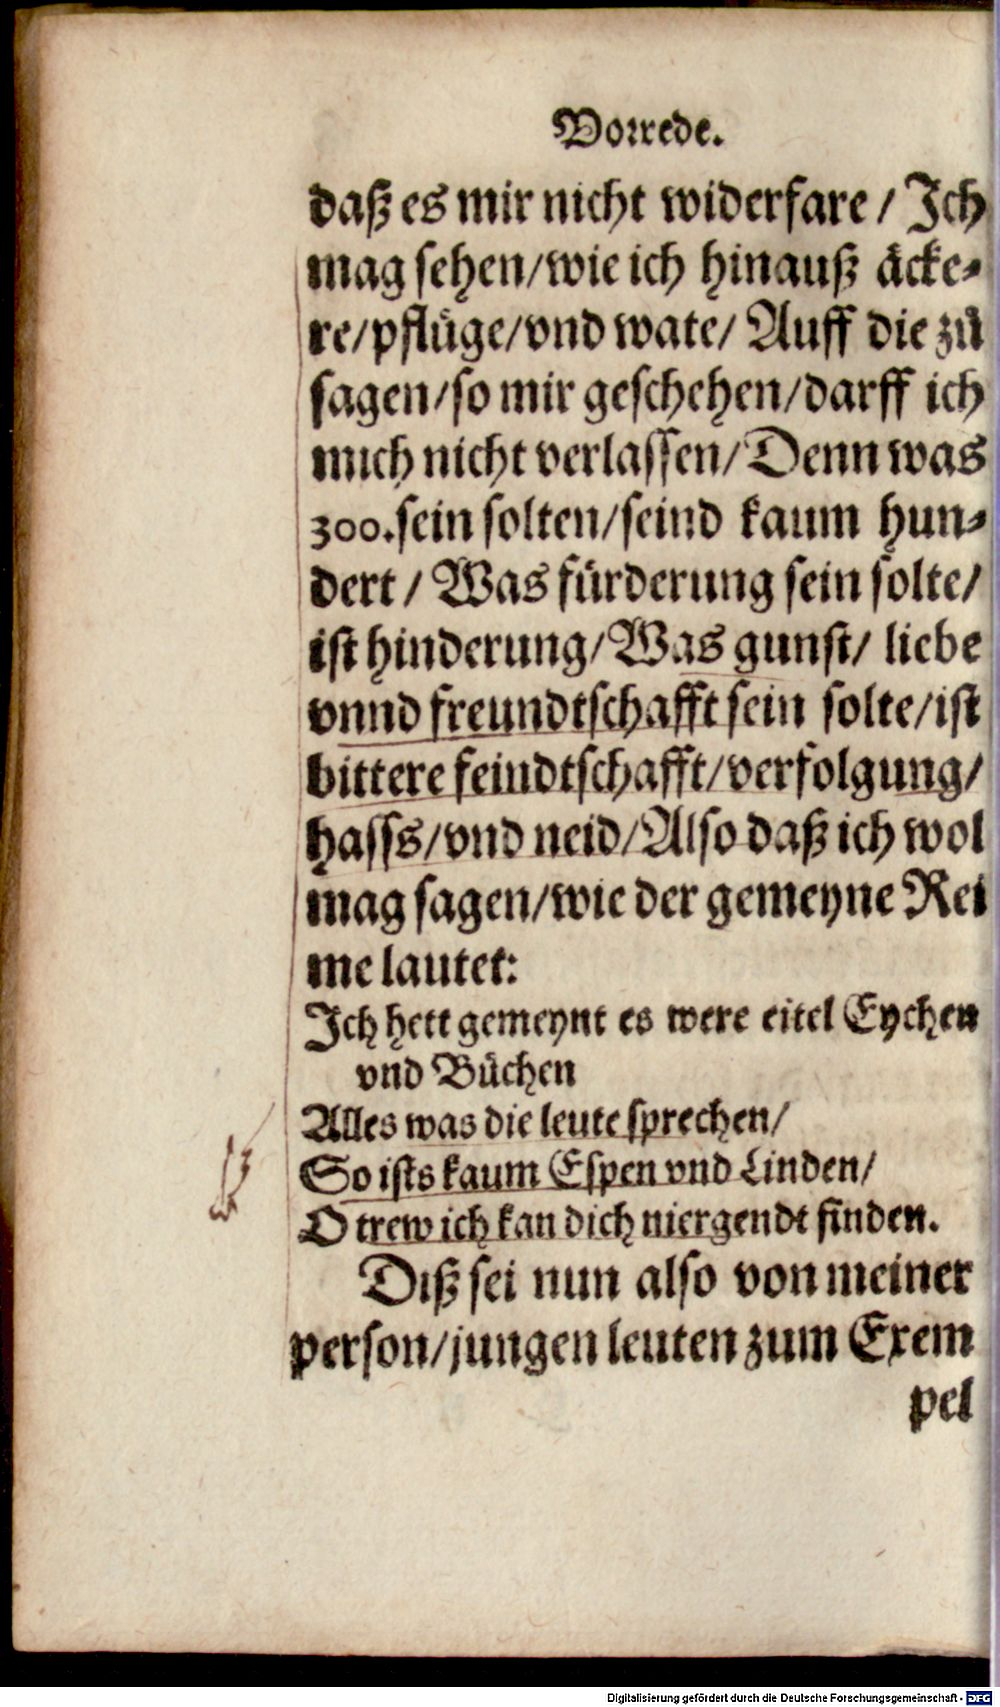 Vorrede.
daß es mir nicht widerfare / Ich
mag sehen/wie ich hinauß äcke-
re/pflüge/vnd wate/ Auff die zů
sagen/so mir geschehen/darff ich
mich nicht verlassen/Denn was
300.sein solten/seind kaum hun-
dert / Was fürderung sein solte/
ist hinderung/Was gunst/ liebe
vnnd freundtschafft sein solte/ist
bittere feindtschafft/verfolgung/
hasss/vnd neid/Also daß ich wol
mag sagen/wie der gemeyne Rei
me lautet:
Ich hett gemeynt es were eitel Eychen
vnd Büchen
Alles was die leute sprechen/
So ists kaum Espen vnd Linden/
O trew ich kan dich niergendt finden.
Diß sei nun also von meiner
person/jungen leuten zum Exem
pel
Digitalisierung gefördert durch die Deutsche Forschungsgemeinschaft - DFG